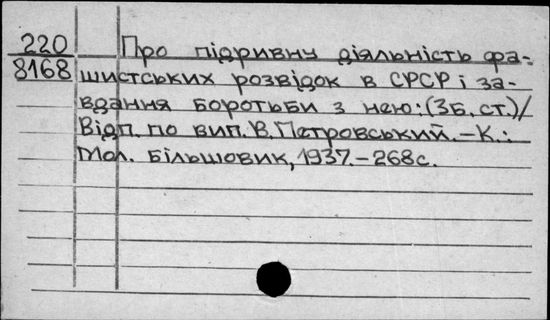 220 Про підривну діяльність фа-
8168 шистських розвідок в СРСР і за-
вдання боротьби з нею: (Зб. ст.)/
Відп. по вип. В. Петровський. – К.:
Мол. більшовик, 1937. – 268с.